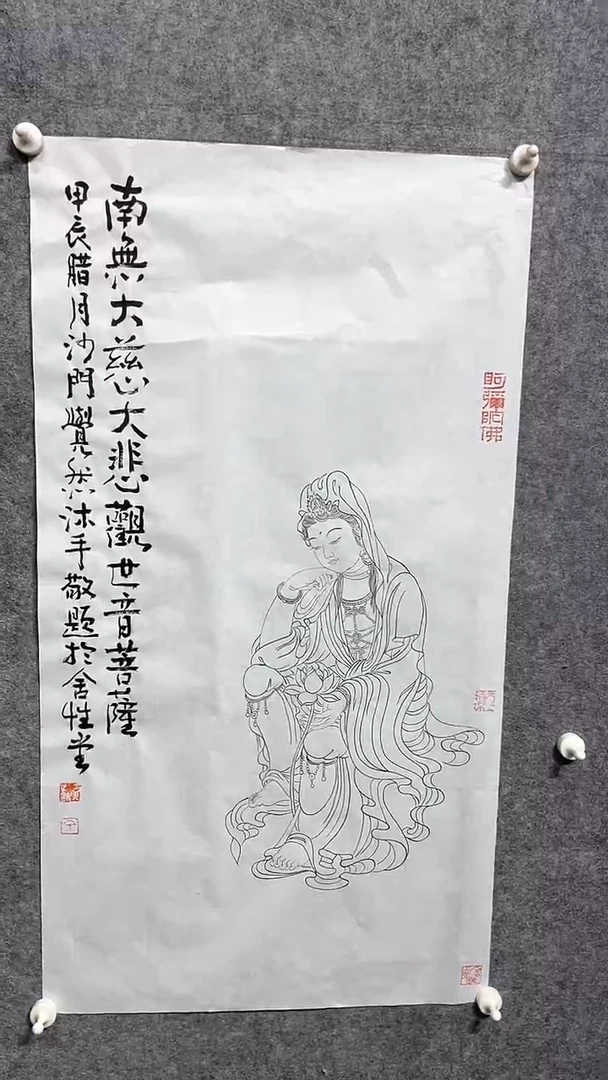 南無大慈大悲觀世音菩薩
甲辰腊月沙門覺然沐手敬题於舍性堂
阿彌陀佛